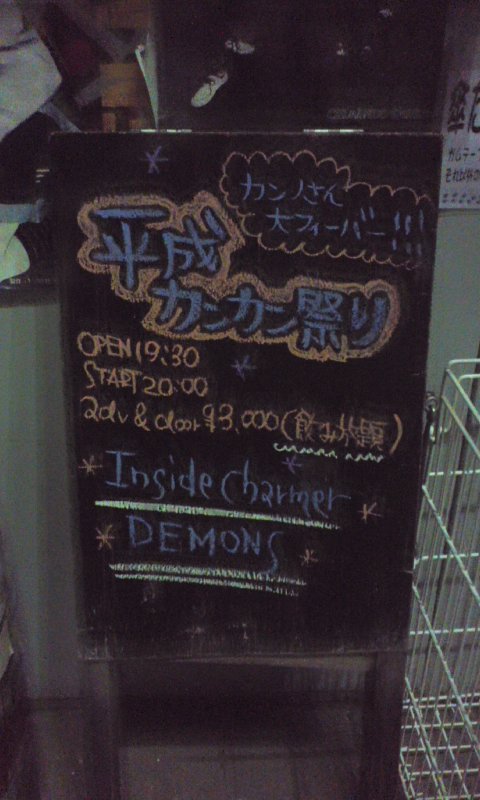 カンノさん
大フィーバー!!!
平成
カンカン祭り
OPEN 19:30
START 20:00
adv & door ¥3,000(飲み放題)
Inside charmer
DEMONS
ガムテープ